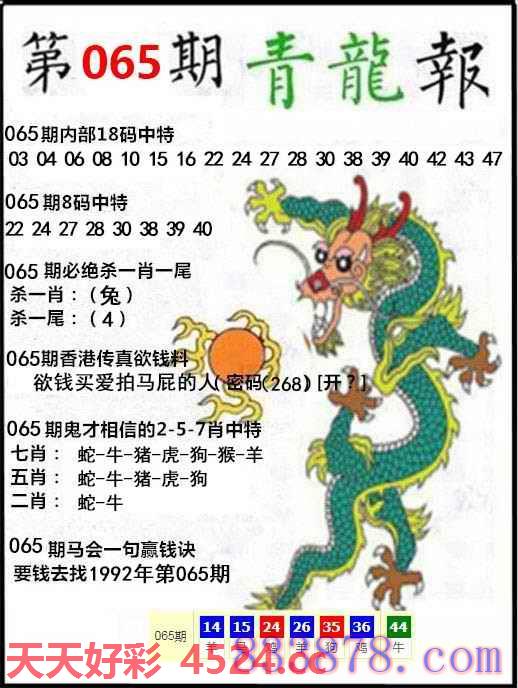 第065期 青龍報
065期内部18码中特
03 04 06 08 10 15 16 22 24 27 28 30 38 39 40 42 43 47
065期8码中特
22 24 27 28 30 38 39 40
065期必绝杀一肖一尾
杀一肖：(兔)
杀一尾：(4)
065期香港传真欲钱料
欲钱买爱拍马屁的人(密码(268)[开?]
065期鬼才相信的2-5-7肖中特
七肖： 蛇-牛-猪-虎-狗-猴-羊
五肖： 蛇-牛-猪-虎-狗
二肖： 蛇-牛
065期马会一句赢钱诀
要钱去找1992年第065期
065期 14 15 24 26 35 36 44
羊 鸡 羊 狗 鸡 牛
天天好彩 4524.cc